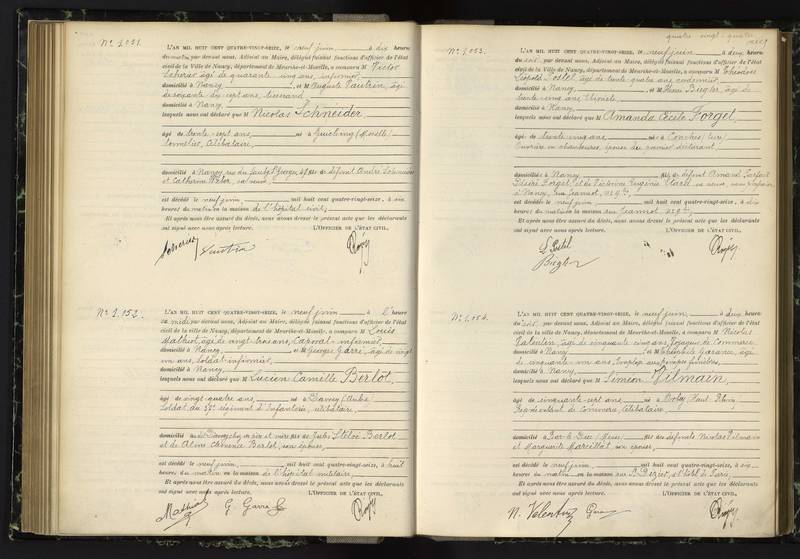 N° 1.051.
L'AN MIL HUIT CENT QUATRE-VINGT-SEIZE, le neuf juin, à dix heures
du matin, par devant nous, Adjoint au Maire, délégué faisant fonctions d'officier de l'état
civil de la Ville de Nancy, département de Meurthe-et-Moselle, a comparu M Victor
âgé de quarante cinq ans, infirmier
domicilié à Nancy, et M Auguste Vautrin, âgé
de soixante dix sept ans,
domicilié à Nancy
lesquels nous ont déclaré que M Nicolas Schneider,
âgé de trente-sept ans, né à (Moselle)
tonnelier, célibataire,
domicilié à Nancy, rue du fils de défunt André Schneider
et Catherine Weber, sa veuve
est décédé le neuf juin, mil huit cent quatre-vingt-seize, à six
heures du matin en la maison de l'hôpital civil,
Et après nous être assuré du décès, nous avons dressé le présent acte que les déclarants
ont signé avec nous après lecture. L'OFFICIER DE L'ÉTAT CIVIL,
Vautrin
N° 1.052.
L'AN MIL HUIT CENT QUATRE-VINGT-SEIZE, le neuf juin, à l'heure
de midi par devant nous, Adjoint au Maire, délégué faisant fonctions d'officier de l'état
civil de la ville de Nancy, département de Meurthe-et-Moselle, a comparu M Louis
Mathiot, âgé de vingt trois ans, Caporal-infirmier,
domicilié à Nancy, et M Georges Garré, âgé de vingt
un ans, Soldat-infirmier,
domicilié à Nancy,
lesquels nous ont déclaré que M Lucien Camille Berlot,
âgé de vingt-quatre ans, né à (Aube)
Soldat au régiment d'Infanterie, célibataire,
domicilié à fils de Jules Berlot
et de Clémence Berlot, son épouse,
est décédé le neuf juin, mil huit cent quatre-vingt-seize, à huit
heures du matin en la maison de l'hôpital militaire,
Et après nous être assuré du décès, nous avons dressé le présent acte que les déclarants
ont signé avec nous après lecture. L'OFFICIER DE L'ÉTAT CIVIL,
Mathiot G. Garré
quatre vingt-quatre
N° 1.053.
L'AN MIL HUIT CENT QUATRE-VINGT-SEIZE, le neuf juin, à deux heures
du soir, par devant nous, Adjoint au Maire, délégué faisant fonctions d'officier de l'état
civil de la Ville de Nancy, département de Meurthe-et-Moselle, a comparu M Théodore
Léopold Postel, âgé de trente quatre ans
domicilié à Nancy, et M Henri Biegler, âgé de
trente cinq ans,
domicilié à Nancy,
lesquels nous ont déclaré que M Amanda Cécile Forget,
âgé de trente cinq ans, né à Conches (Eure)
Ouvrière en chaussures, épouse du premier déclarant,
domicilié à Nancy, fils de défunt Amand Parfait
Désiré Forget, et de Victorine Eugénie sa veuve,
à Nancy, rue Jeannot, n° 9
est décédé le neuf juin, mil huit cent quatre-vingt-seize, à dix
heures du matin en la maison rue Jeannot, n° 9
Et après nous être assuré du décès, nous avons dressé le présent acte que les déclarants
ont signé avec nous après lecture. L'OFFICIER DE L'ÉTAT CIVIL,
L. Postel
Biegler
N° 1.054.
L'AN MIL HUIT CENT QUATRE-VINGT-SEIZE, le neuf juin, à deux heures
du soir, par devant nous, Adjoint au Maire, délégué faisant fonctions d'officier de l'état
civil de la ville de Nancy, département de Meurthe-et-Moselle, a comparu M Nicolas
Valentin, âgé de cinquante cinq ans, Voyageur de Commerce,
domicilié à Nancy et M Théophile Garance, âgé
de cinquante un ans, Employé aux pompes funèbres,
domicilié à Nancy,
lesquels nous ont déclaré que M Siméon Vilmain,
âgé de cinquante-sept ans, né à (Haut Rhin)
Représentant de Commerce, Célibataire,
domicilié à Bar-le-Duc (Meuse) fils de défunts Nicolas Vilmain
et Marguerite Marcillat son épouse,
est décédé le neuf juin, mil huit cent quatre-vingt-seize, à six
heures du matin, en la maison rue St Dizier, et hôtel de Paris,
Et après nous être assuré du décès, nous avons dressé le présent acte que les déclarants
ont signé avec nous après lecture. L'OFFICIER DE L'ÉTAT CIVIL,
N. Valentin